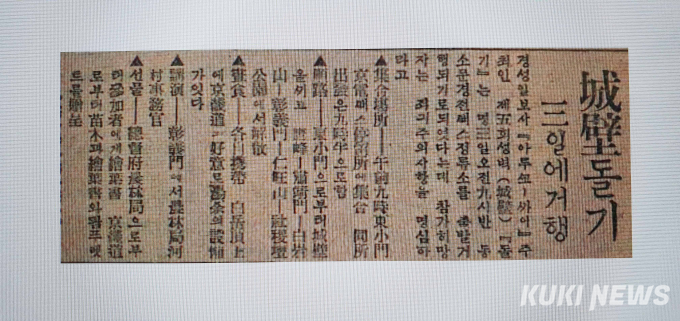 城壁돌기
三일에거행
경성일보사『아루코-싸이』주
최인 제五회성벽(城壁)『돌
기』는 명三일오전九시반 동
소문경전뻐스정류소를 출발거
행되기로되엿다는데 참가희망
자는 좌긔주의사항을 명심하
라고
▲集合場所─午前九時東小門
京電뻐스停留所에集合 同所
出發은九時半으로함
▲順路─東小門으로부터城壁
을끼고 蕭靖門─白岩
山─彰義門─仁旺山 社稷壇
公園에서解散
▲晝食─各自携帶 白岳頂上
에京畿道 好意로 設備
가잇다
▲講演─彰義門에서農林局河
村事務官
▲선물─總督府農林局으로부
터參加者에게繪葉書 京畿道
로부터苗木과繪葉書와팜푸렛
트를贈呈
KUKI NEWS